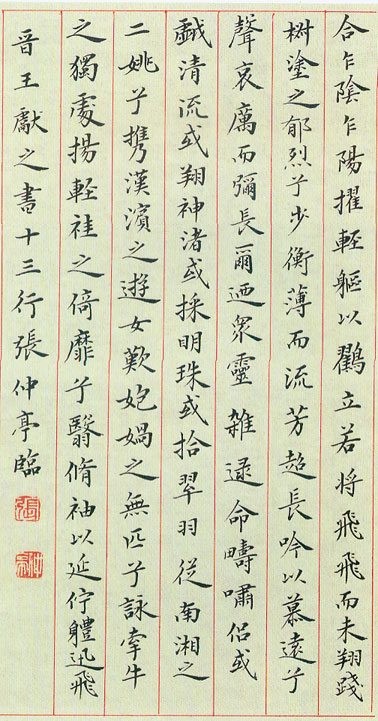 合乍陰乍陽擢輕軀以鶴立若將飛飛而未翔踐
椒塗之郁烈兮步衡薄而流芳超長吟以慕遠兮
聲哀厲而彌長爾迺眾靈雜遝命疇嘯侶或
戲清流或翔神渚或採明珠或拾翠羽從南湘之
二姚兮携漢濱之遊女歎匏媧之無匹兮詠牽牛
之獨處揚輕袿之倚靡兮翳脩袖以延佇體迅飛
晉王獻之書十三行張仲亭臨